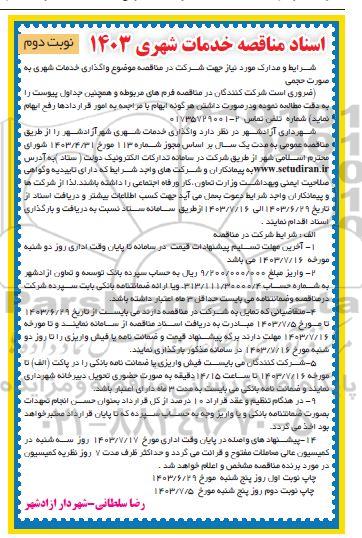 اسناد مناقصه خدمات شهری ۱۴۰۳
نوبت دوم
شرایط و مدارک مورد نیاز جهت شرکت در مناقصه موضوع واگذاری خدمات شهری به
صورت حجمی
(ضروری است شرکت کنندگان در مناقصه فرم های مربوطه و همچنین جداول پیوست را
به دقت مطالعه نموده ودرصورت داشتن هرگونه ابهام با مراجعه به امور قراردادها رفع ابهام
نماید) شماره تلفن تماس ۲-۰۱۷۳۵۷۲۹۰۰۱
شهرداری آزادشهر در نظر دارد واگذاری خدمات شهری شهر آزادشهر را از طریق
مناقصه عمومی به مدت یک سال بر اساس مجوز شماره ۱۱۳ مورخ ۱۴۰۳/۴/۳۱ شورای
محترم اسلامی شهر از طریق شرکت در سامانه تدارکات الکترونیک دولت (ستاد) به آدرس
www.setudiran.ir به پیمانکاران و شرکت های واجد شرایط که دارای تاییدیه وگواهی
صلاحیت ایمنی وبهداشت وزارت تعاون، کار ورفاه اجتماعی را داشته باشند. لذا از شرکت ها
و پیمانکاران واجد شرایط دعوت بعمل می آید جهت کسب اطلاعات بیشتر و دریافت اسناد از
تاریخ ۱۴۰۳/۶/۲۹ الی ۱۴۰۳/۷/۱۶ از طریق سامانه ستاد نسبت به دریافت و بارگذاری
اسناد اقدام نمایند .
الف : شرایط شرکت در مناقصه
۱- آخرین مهلت تسلیم پیشنهادات قیمت در سامانه تا پایان وقت اداری روز دو شنبه
مورخه ۱۴۰۳/۷/۱۶ می باشد
۲- واریز مبلغ ۹/۲۰۰/۰۰۰/۰۰۰ ریال به حساب سپرده بانک توسعه و تعاون ازادشهر
به شماره حساب ۳۱۳/۱۱۱/۳۰۰۰۰/۴ ویا ارائه ضمانتنامه بانکی بابت سپرده شرکت
درمناقصه وضمانتنامه می بایست حداقل ۳ ماه اعتبار داشته باشد.
۴-متقاضیانی که تمایل به شرکت در مناقصه دارند می بایست از تاریخ ۱۴۰۳/۶/۲۹
تا مورخ ۱۴۰۳/۷/۵ مبادرت به دریافت اسناد مناقصه از سامانه نمایند و تا مورخه
۱۴۰۳/۷/۱۶ مهلت دارند برگه پیشنهاد قیمت و ضمانت نامه یا فیش واریزی را تا روز دو
شنبه مورخ ۱۴۰۳/۷/۱۶ در سامانه مذکور بارگذاری نمایند.
۵-شرکت کنندگان می بایست فیش واریزی یا ضمانت نامه بانکی را در پاکت (الف) تا
مورخه ۱۴۰۳/۷/۱۶ تا ساعت ۱۴/۱۵ دقیقه به صورت حضوری تحویل دبیرخانه شهرداری
نمایند و ضمانت نامه بانکی می بایست به مدت ۳ ماه دارای اعتبار باشد.
۹- در هنگام تنظیم و عقد قرارداد ۱۰ درصد از کل قرارداد بعنوان حسن انجام تعهدات
بصورت ضمانتنامه بانکی و یا واریز وجه به حساب سپرده که تا پایان قرارداد معتبر خواهد
بود اخذ می گردد.
۱۴-پیشنهاد های واصله در پایان وقت اداری مورخ ۱۴۰۳/۷/۱۷ روز سه شنبه در
کمیسیون عالی معاملات مفتوح و قرائت می گردد و حداکثر ظرف مدت ۷ روز نظریه کمیسیون
در مورد برنده مناقصه مشخص و اعلام خواهد شد .
چاپ نوبت اول روز پنج شنبه مورخ ۱۴۰۳/۶/۲۹
چاپ نوبت دوم روز پنج شنبه مورخ ۱۴۰۳/۷/۵
رضا سلطانی-شهردار ازادشهر